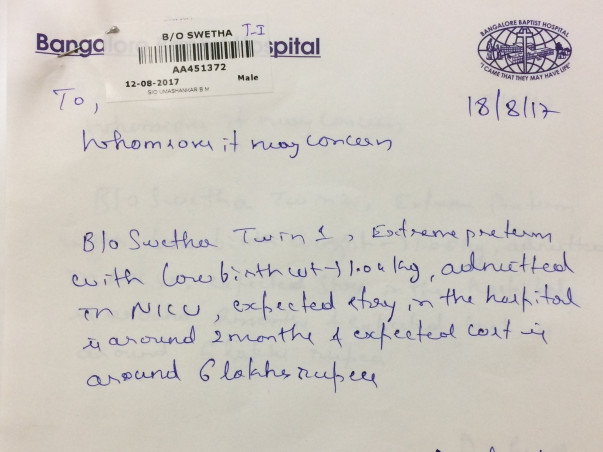 Banga spital
B/O SWETHA T-I
AA451372
12-08-2017 Male
S/O UMASHANKAR B M
BANGALORE BAPTIST HOSPITAL
"I CAME THAT THEY MAY HAVE LIFE"
To,
18/8/17
whomsoever it may concern
B/o Swetha Twin 1, Extreme preterm
with low birth wt - 1.04 kg, admitted
in NICU, expected stay in the hospital
is around 2 months & expected cost is
around 6 lakhs rupees